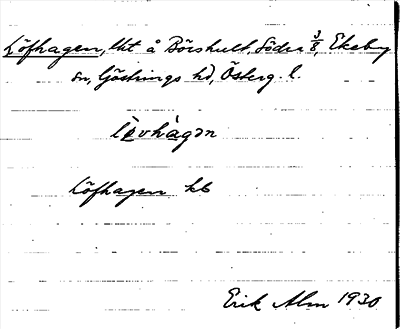 Löfhagen, lht å Börshult, Söder 3/8, Ekeby
sn, Göstrings hd, Österg. l.
lø̀vhàgən
Löfhagen kb
Erik Alm 1930